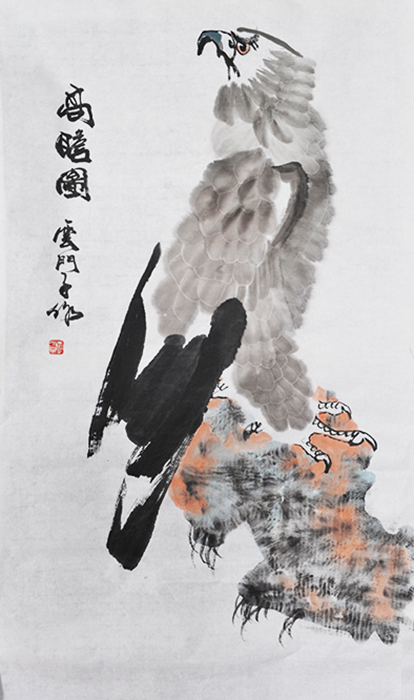 高瞻圖
雲門子作